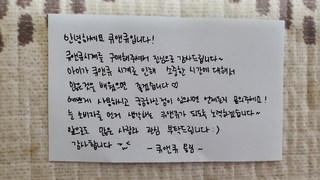 안녕하세요 큐앤큐입니다!
큐앤큐시계를 구매해주셔서 진심으로 감사드립니다~
아이가 큐앤큐 시계로 인해 소중한 시간에 대해서
많은것을 배웠으면 좋겠습니다♡
예쁘게 사용하시고 궁금하신점이 있으시면 언제든지 문의주세요!
늘 소비자를 먼저 생각하는 큐앤큐가 되도록 노력하겠습니다~
앞으로도 많은 사랑과 관심 부탁드립니다 :)
감사합니다 ^_^ - 큐앤큐 올림 -